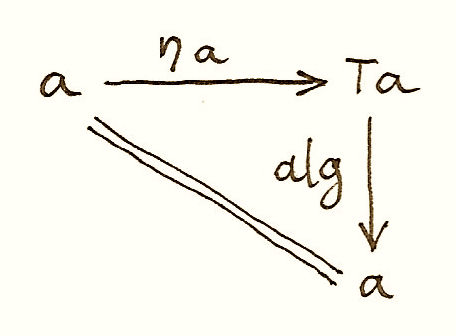 ηa
a
Ta
alg
a